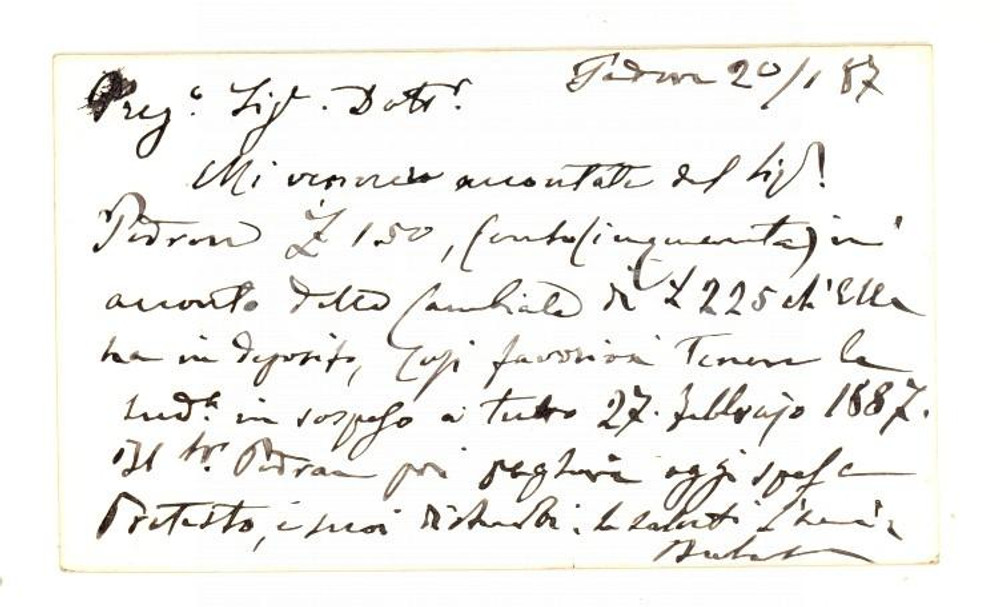 Padova 20/1 87
Preg.o Sig.r Dott.r
Mi vennero accontate dal Sig.r
Pedron £ 150, (centocinquanta) in
acconto della Cambiale di £ 225 ch'Ella
ha in deposito, così favorirà tenere la
sud.a in sospeso a tutto 27. Febbrajo 1887.
Il Sr. Pedron poi pagherà oggi spese
Protesto, e suoi disturbi. La saluti